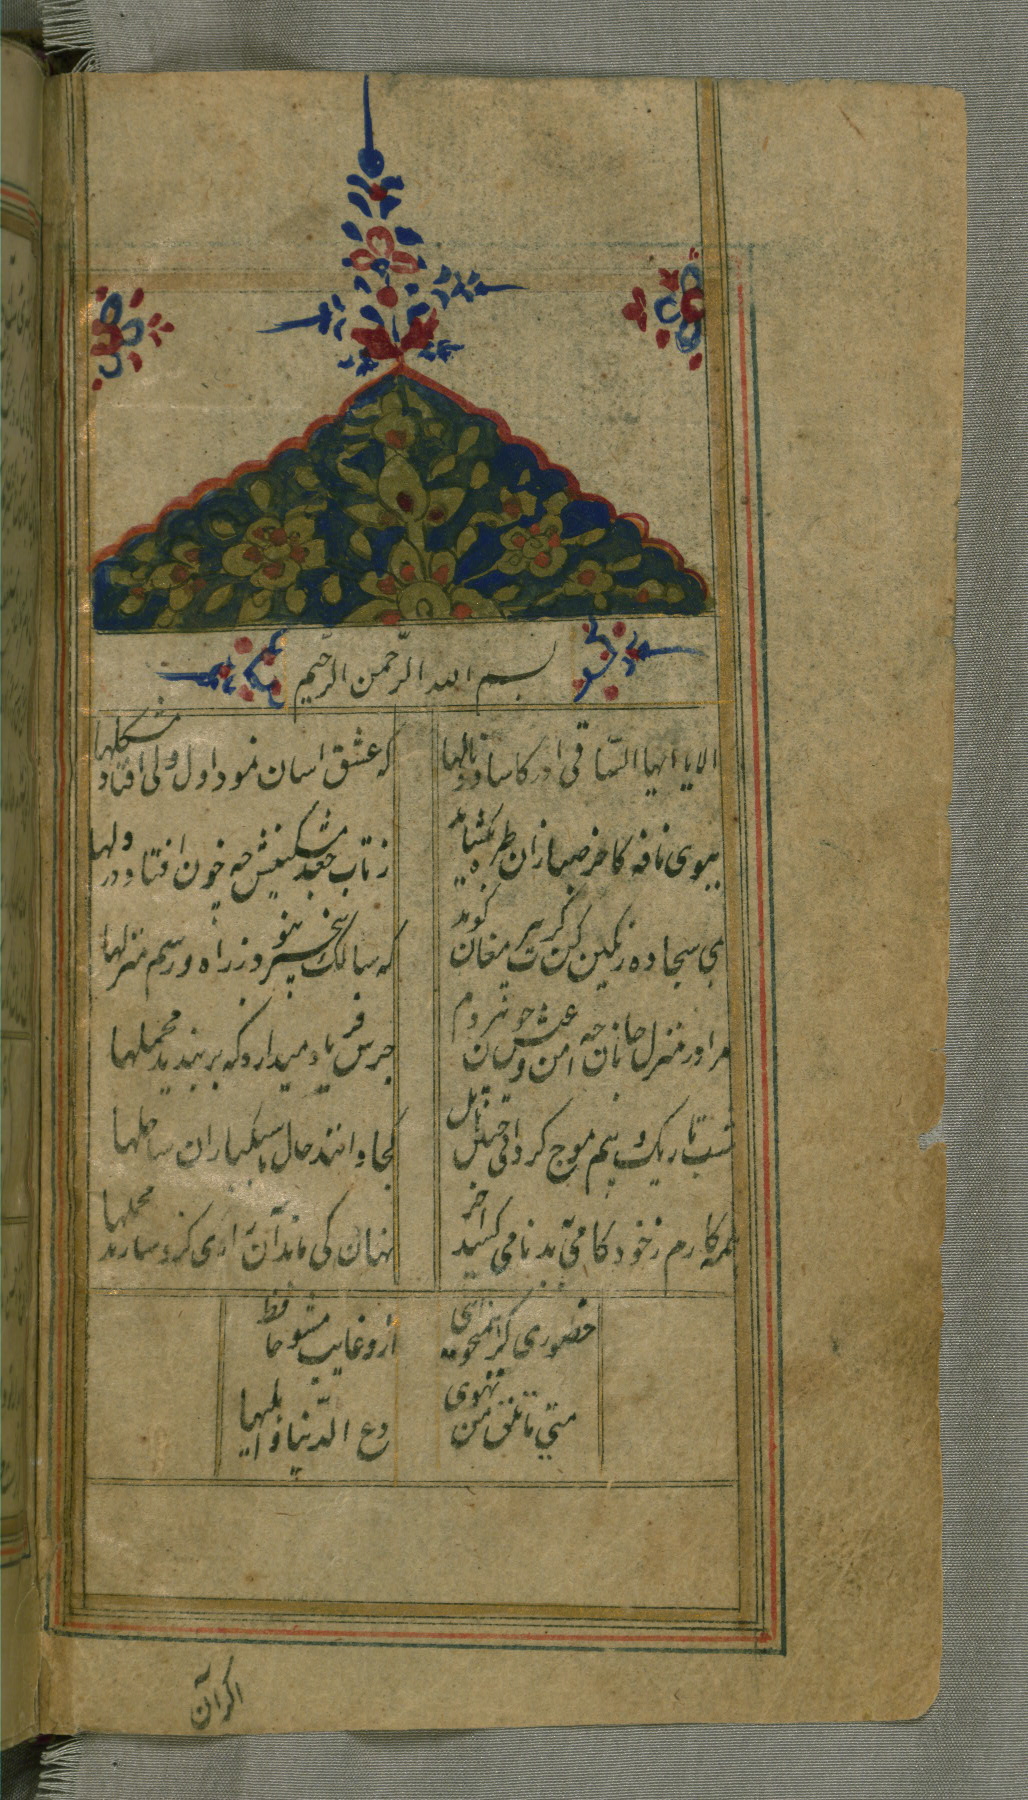 بسم الله الرّحمن الرّحیم
الا یا ایها السّاقی ادر کاسا و ناولها
که عشق اسان نمود اول ولی افتاد مشکلها
ببوی نافه کاخر صبا زان طره بکشاید
ز تاب جعد مشکینش چه خون افتاد در دلها
بمی سجاده رنکین کن کرت پیر مغان کوید
که سالک بیخبر نبود ز راه و رسم منزلها
مرا در منزل جانان چه امن و عیش چون هر دم
جرس فریاد میدارد که بر بندید محملها
شب تاریک و بیم موج و کردابی چنین هایل
کجا دانند حال ما سبکباران ساحلها
همه کارم ز خود کامی به بدنامی کشید اخر
نهان کی ماند آن رازی کزو سازند محفلها
حضوری کر همیخواهی
ازو غایب مشو حافظ
متی ما تلق من تهوی
دع الدّنیا و اهملها
اکر آن